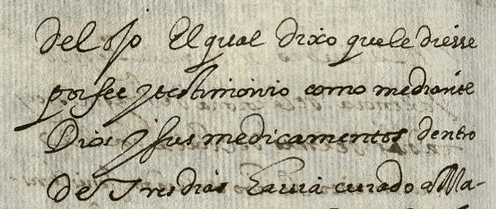 del ojo El qual dixo quele diesse
por fee y testimonio como mediante
Dios y sus medicamentos dentro
de Tres dias havia curado a Ma-